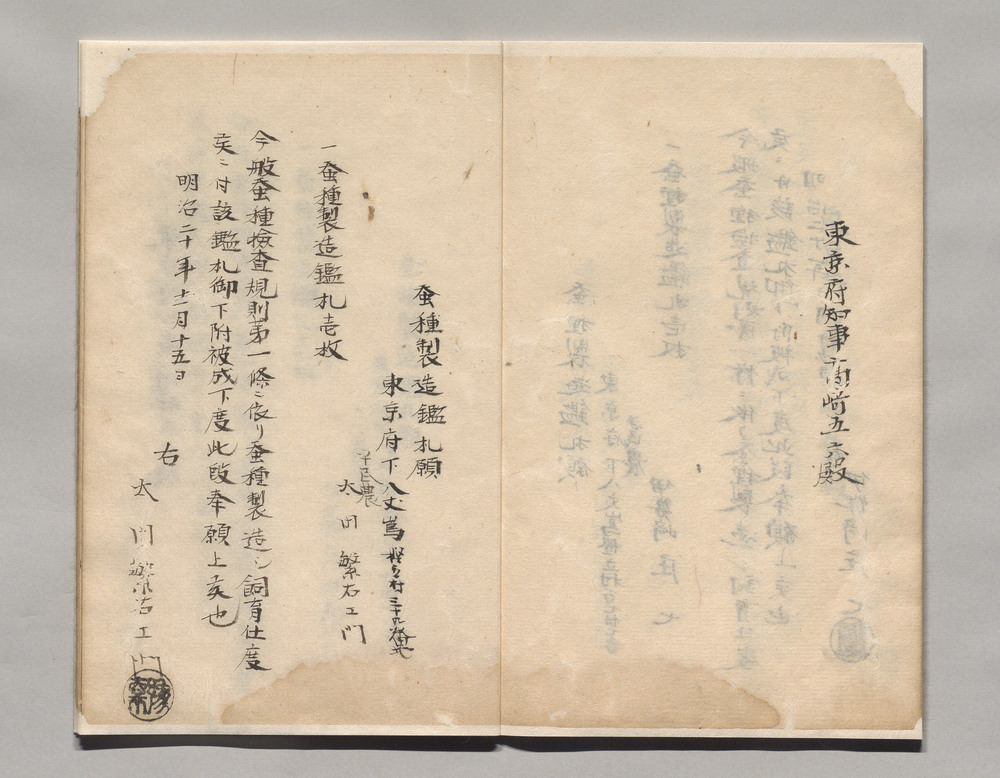 東京府知事高崎五六殿
蚕種製造鑑札願
東京府下八丈嶌樫立村三十九番地
平民農
太田繁右エ門
一蚕種製造鑑札壱枚
今般蚕種検査規則第一條ニ依リ蚕種製造シ飼育仕度
候ニ付該鑑札御下附被成下度此段奉願上候也
明治二十年十一月十五日
右
太田繁右エ門